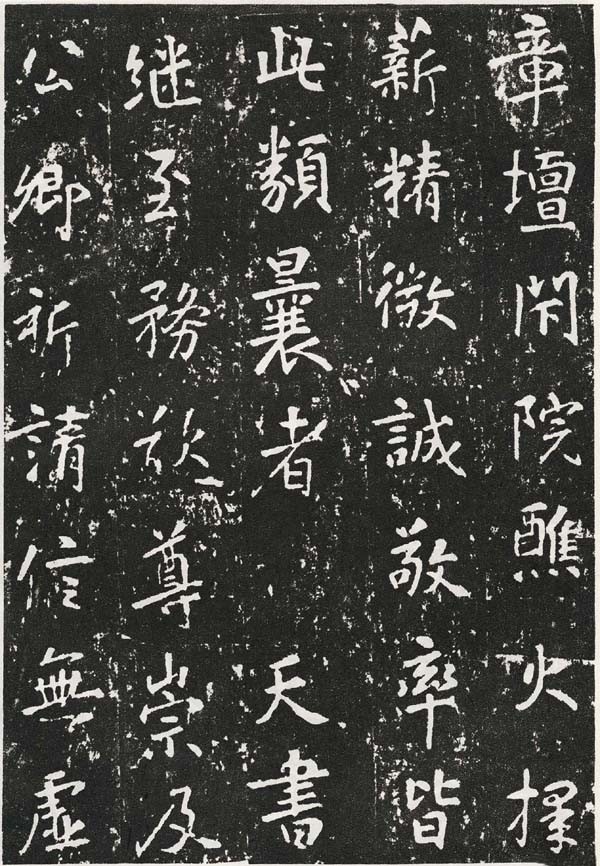 章壇閑院醮火擇
薪精微誠敬率皆
此類曩者 天書
継至務欲尊崇及
公卿祈請信無虛